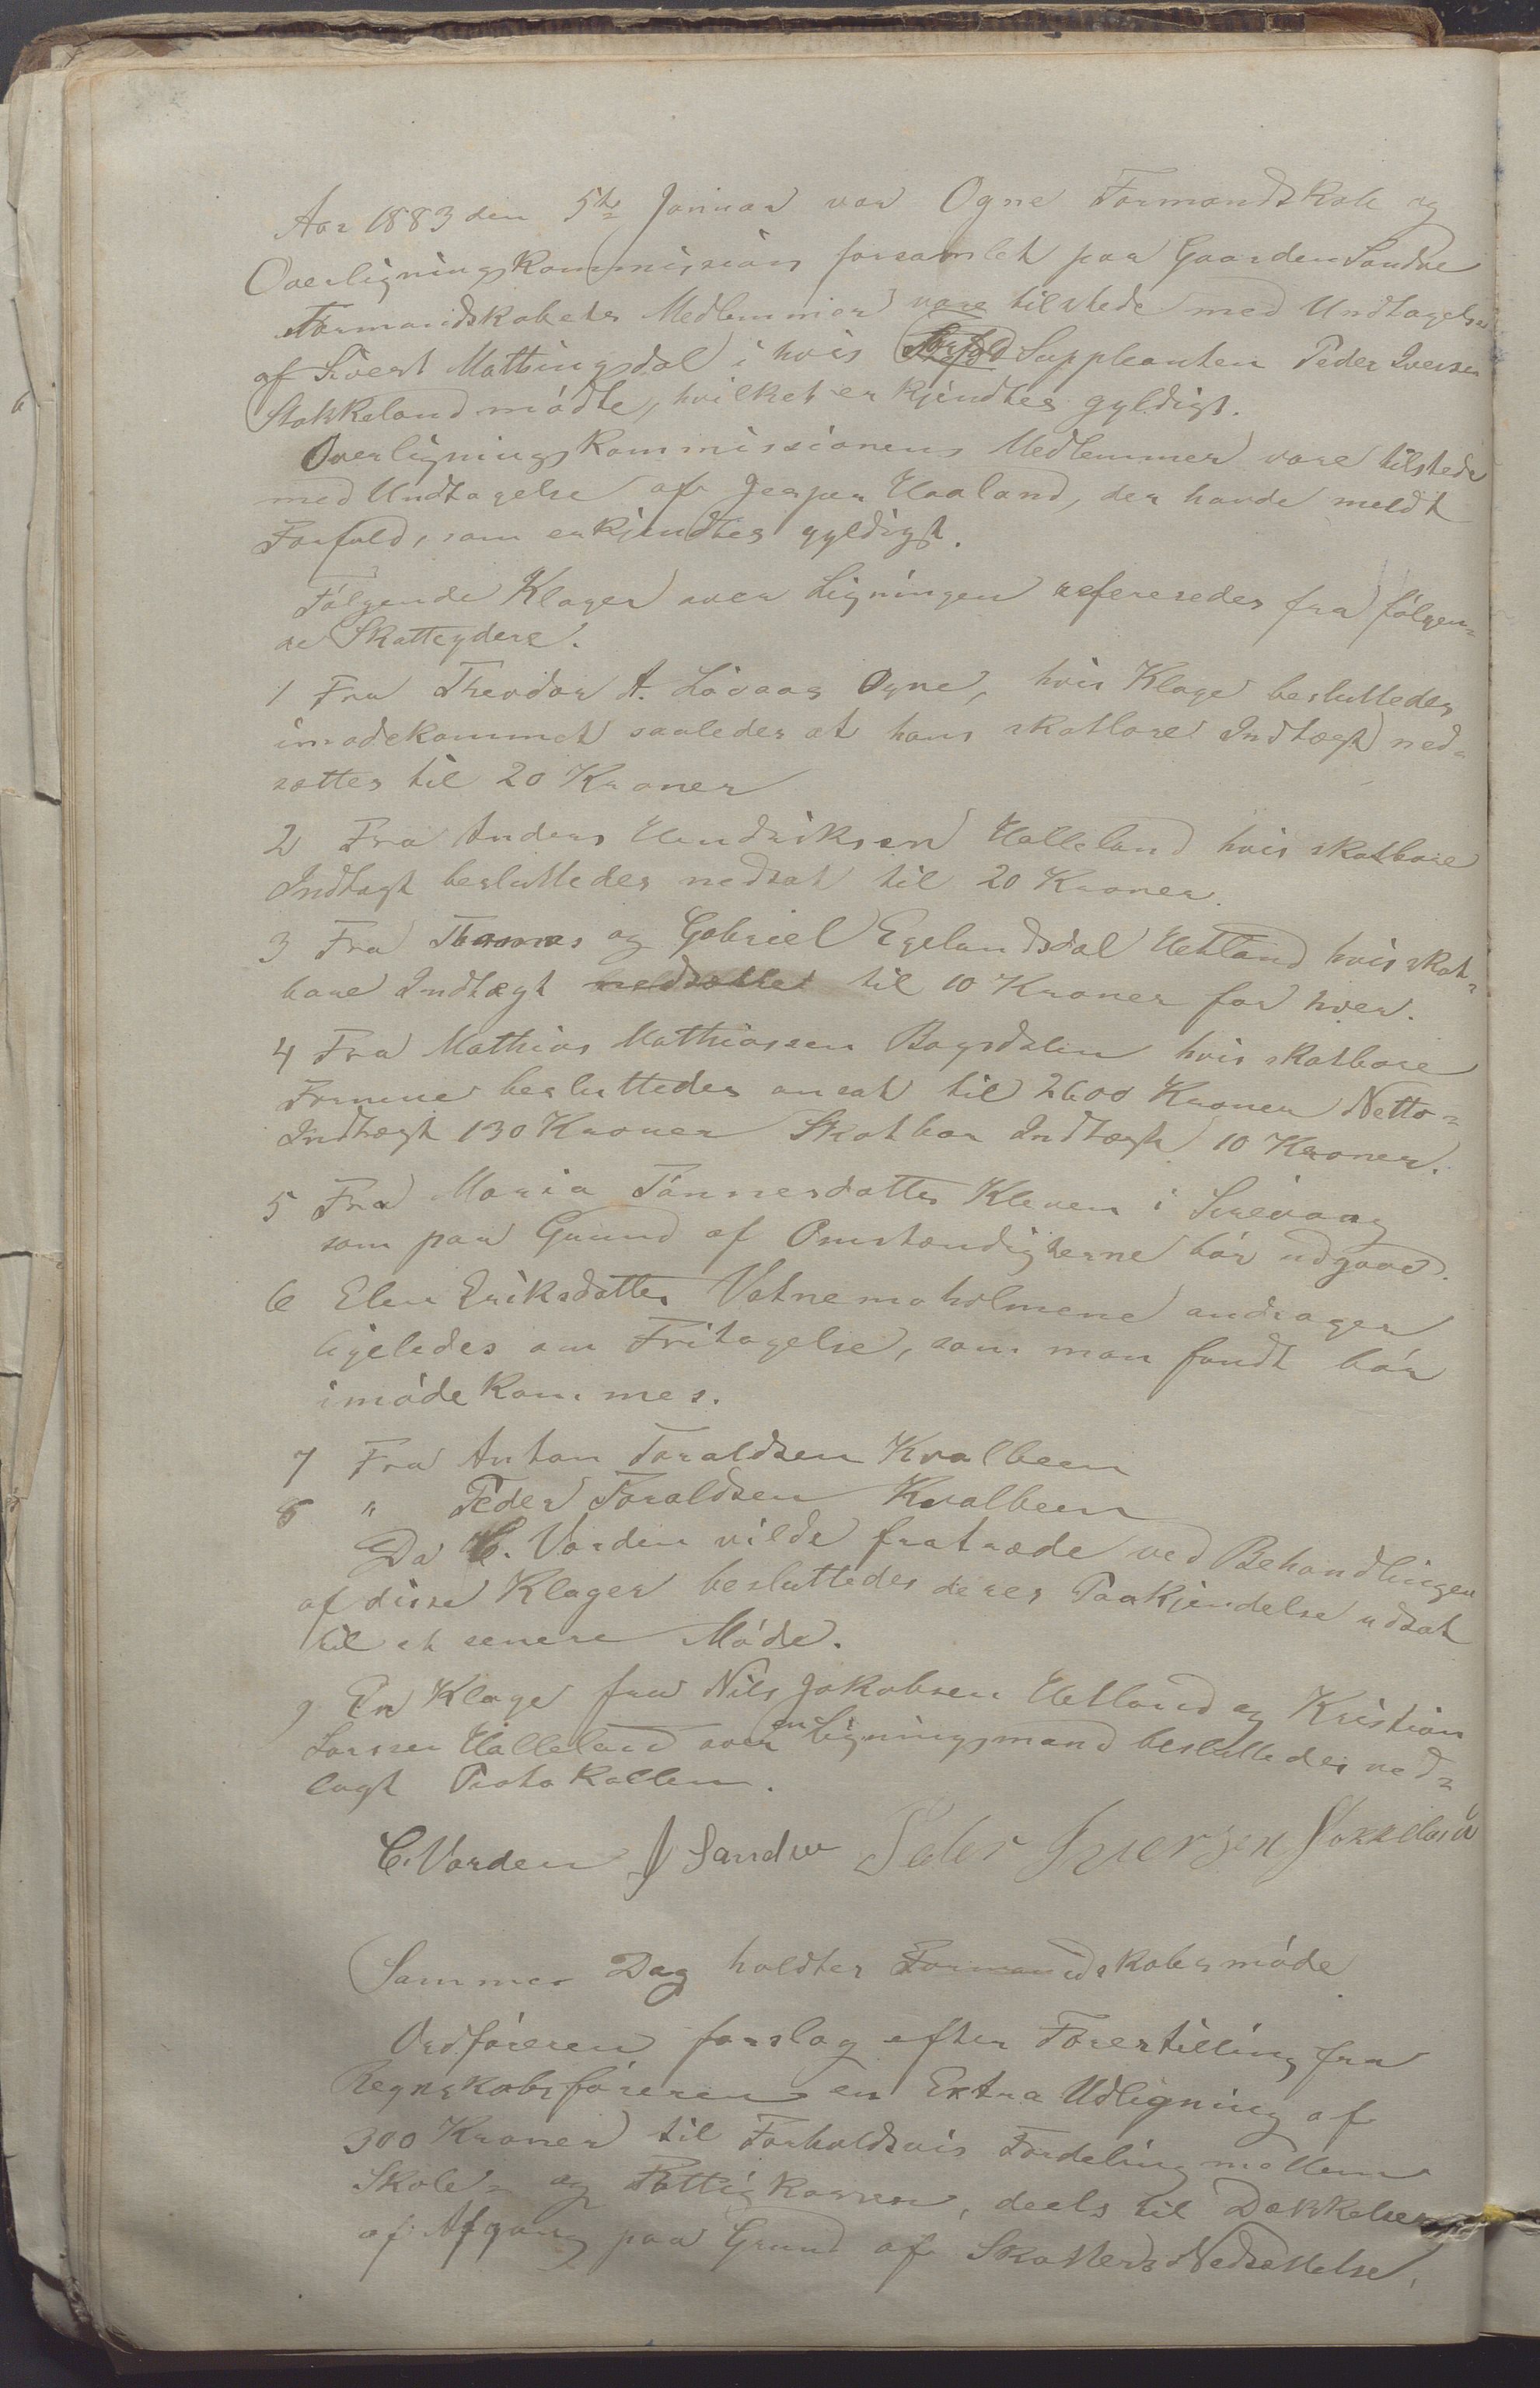 Aar 1883 den 5te Januar var Ogne Formandskab og
Overligningskommission forsamlet paa Gaarden Sandve
Formandskabets Medlemmer vare tilstede med Undtagelse
af Sivert Mattingsdal i hvis Forfald Suppleanten Peder Iversen
Stokkeland mødte, hvilket erkjendtes gyldigt.
Overligningskommissionens Medlemmer vare tilstede
med Undtagelse af Jesper Haaland, der havde meldt
Forfald, som erkjendtes gyldigt.
Følgende Klager over Ligningen refereredes fra følgen-
de Skatteydere.
1 Fra Theodor A. Lovaas Ogne, hvis Klage besluttedes
imødekommet saaledes at hans skatbare Indtægt ned-
sættes til 20 Kroner
2 Fra Anders Hendriksen Halleland hvis skatbare
Indtægt besluttedes nedsat til 20 Kroner.
3 Fra Thomas og Gabriel Egelandsdal Hetland hvis skat-
bare Indtægt nedsættes til 10 Kroner for hver.
4 Fra Mathias Mathiassen Bagsdalen hvis skatbare
Formue besluttedes ansat til 2600 Kroner Netto-
Indtægt 130 Kroner Skatbar Indtægt 10 Kroner.
5 Fra Maria Tønnesdatter Kleven i Sirevaag
som paa Grund af Omstændigherne bør udgaae.
6 Elen Eriksdatter Vatnemoholmene andrager
ligeledes om Fritagelse, som man fandt bør
imødekommes.
7 Fra Anton Taraldsen Kvalbeen
8 " Peder Taraldsen Kvalbeen
Da C. Varden vilde fratræde ved Behandlingen
af disse Klager besluttedes deres Paakjendelse udsat
til et senere Møde.
9 En Klage fra Nils Jakobsen Hetland og Kristian
Larsen Halleland over en Ligningsmand besluttedes ved-
lagt Protokollen.
C. Varden J Sandve Peder Iversen Stokkeland
Samme Dag holdtes Formandskabsmøde
Ordføreren forslog efter Forestilling fra
Regnskabsføreren en Extra Udligning af
300 Kroner til Forholdsvis Fordeling mellem
Skole- og Fattigkassen, deels til Dækkelse
af Afgang paa Grund af Skatteds Nedsættelse.